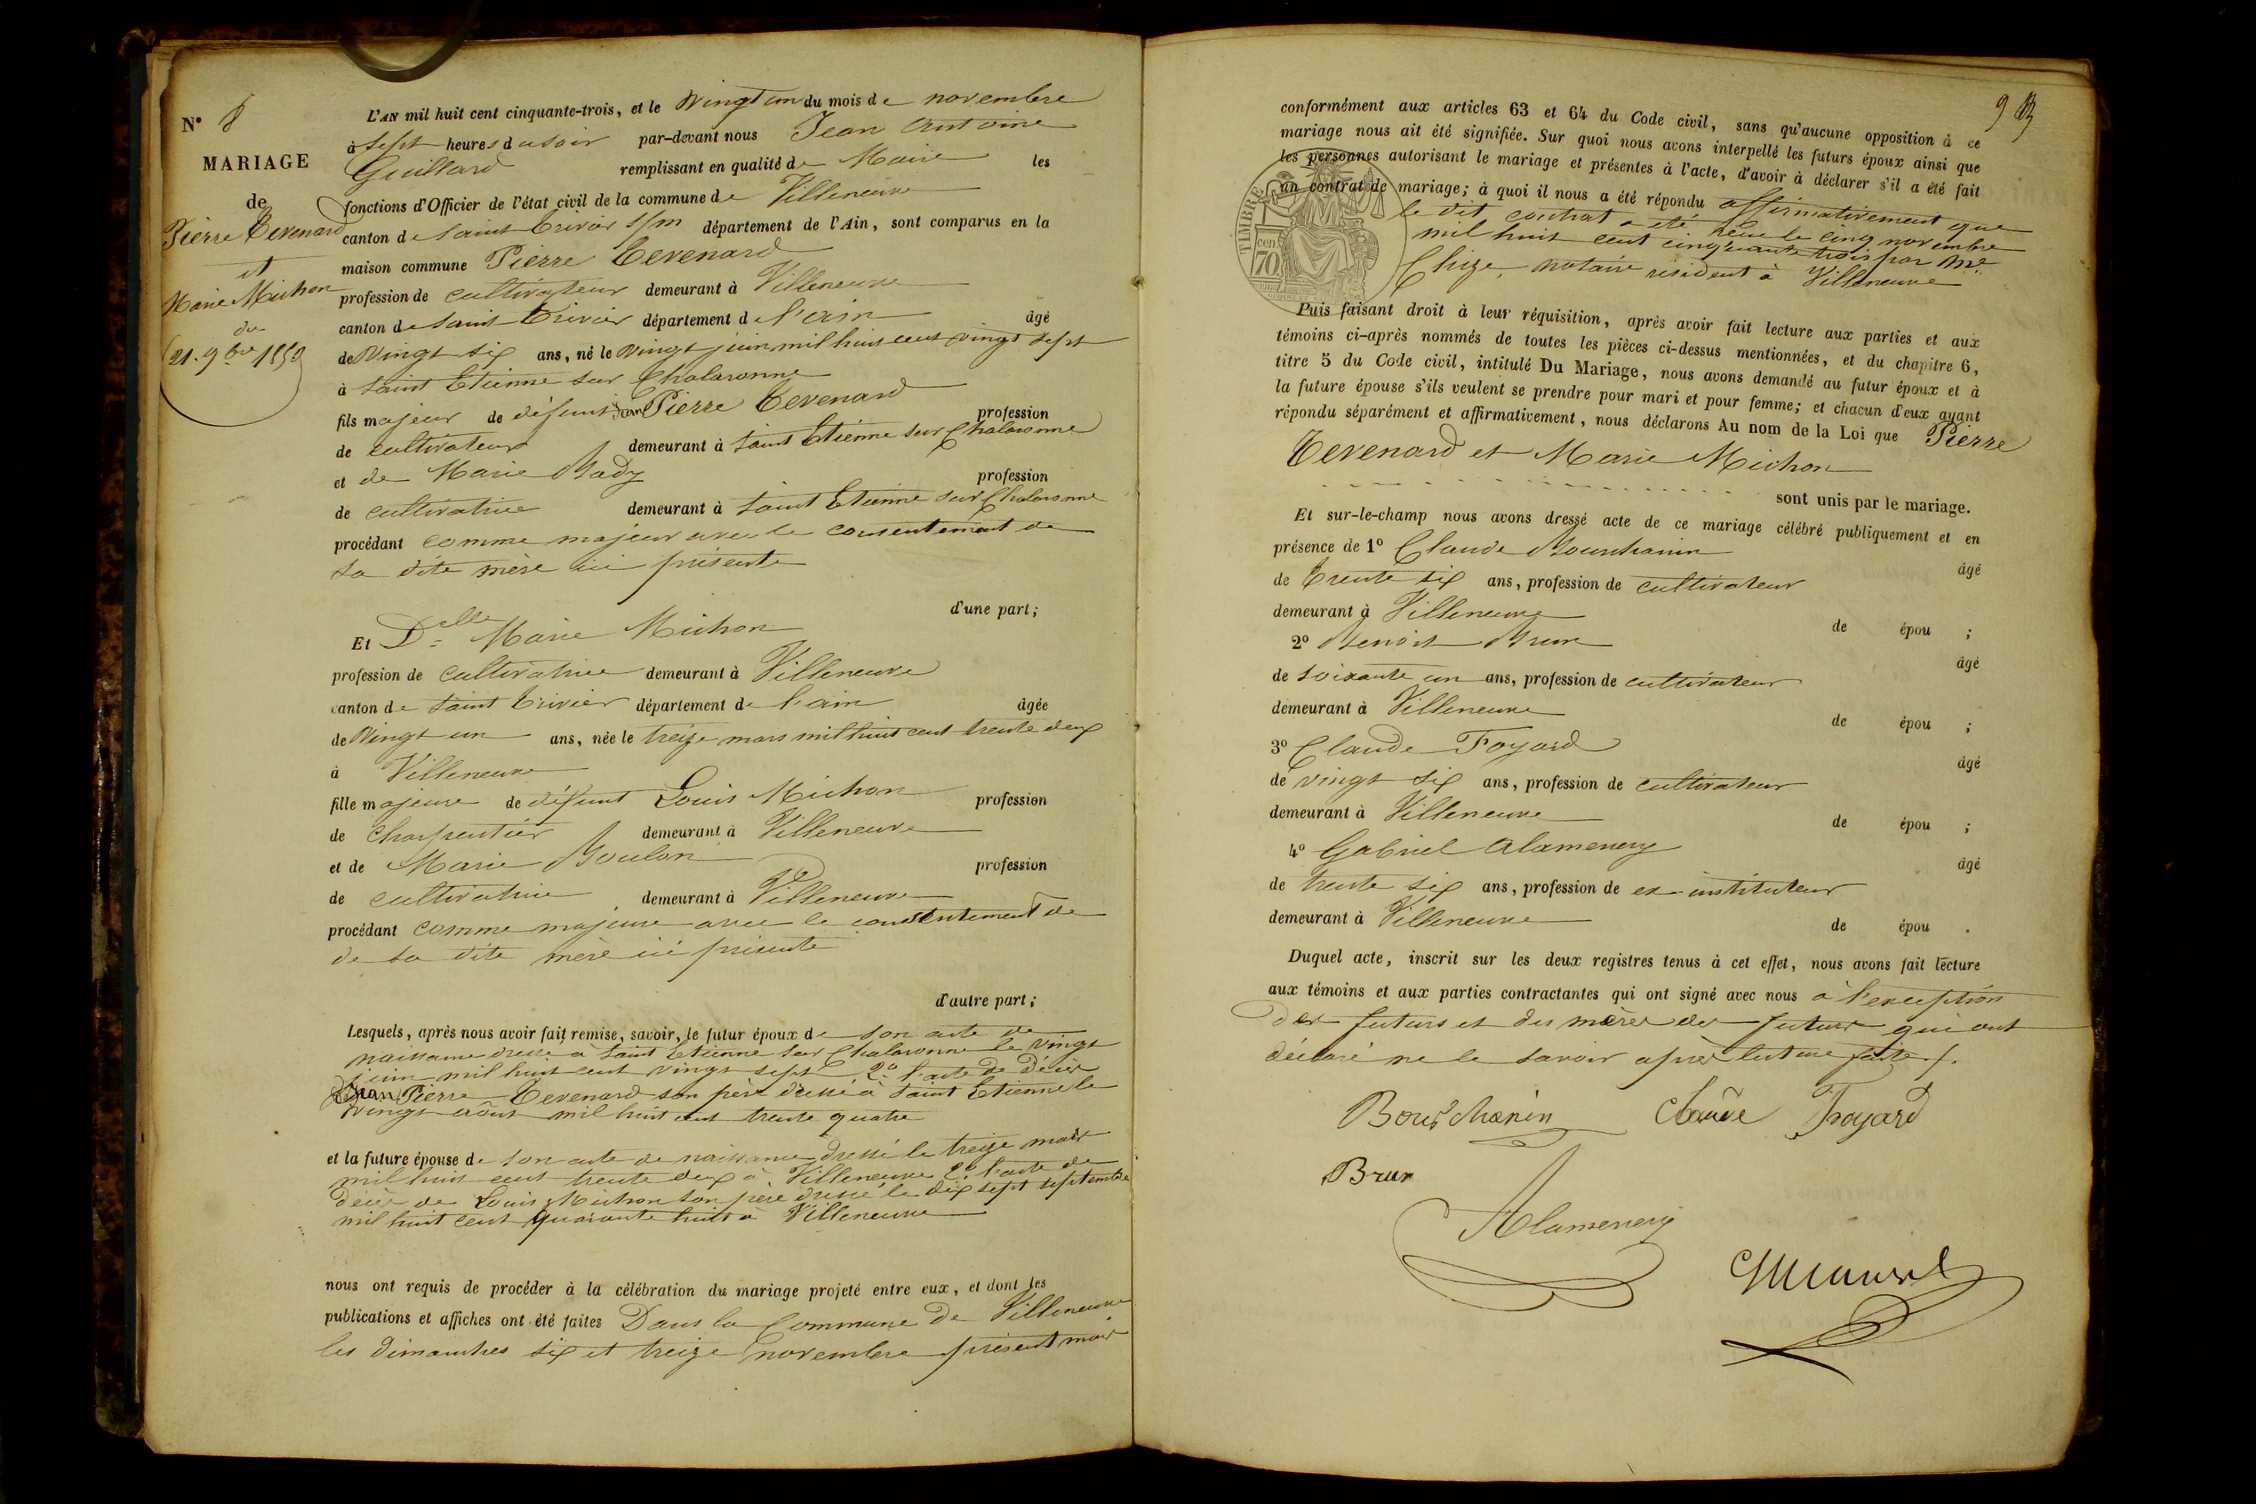 N° 8
MARIAGE
de
Pierre Tevenard
et
Marie Michon
du
21. 9bre 1853
L'AN mil huit cent cinquante-trois, et le Vingt un du mois de novembre
à sept heures du soir par-devant nous Jean Antoine
Guillard remplissant en qualité de Maire les
fonctions d'Officier de l'état civil de la commune de Villeneuve
canton de Saint Trivier s/m département de l'Ain, sont comparus en la
maison commune Pierre Tevenard
profession de cultivateur demeurant à Villeneuve
canton de Saint Trivier département de l'ain âgé
de Vingt six ans, né le Vingt juin mil huit cent vingt sept
à Saint Etienne sur Chalaronne
fils majeur de défunt Jean Pierre Tevenard profession
de cultivateur demeurant à Saint Etienne sur Chalaronne
et de Marie Bady profession
de cultivatrice demeurant à Saint Etienne sur Chalaronne
procédant comme majeur avec le consentement de
sa dite mère ici présente
d'une part;
Et Delle Marie Michon
profession de cultivatrice demeurant à Villeneuve
canton de Saint Trivier département de l'ain âgée
de Vingt un ans, née le treize mars mil huit cent trente deux
à Villeneuve
fille majeure de défunt Louis Michon profession
de Charpentier demeurant à Villeneuve
et de Marie Boulon profession
de cultivatrice demeurant à Villeneuve
procédant comme majeure avec le consentement de
de sa dite mère ici présente
d'autre part;
Lesquels, après nous avoir fait remise, savoir, le futur époux de son acte de
naissance dressé à Saint Etienne sur Chalaronne le vingt
juin mil huit cent vingt sept 2° l'acte de Décès
Jean Pierre Tevenard son père dressé à Saint Etienne le
vingt août mil huit cent trente quatre
et la future épouse de son acte de naissance dressé le treize mars
mil huit cent trente deux à Villeneuve 2° l'acte de
décès de Louis Michon son père dressé le dix sept septembre
mil huit cent quarante huit à Villeneuve
nous ont requis de procéder à la célébration du mariage projeté entre eux, et dont les
publications et affiches ont été faites Dans la Commune de Villeneuve
les dimanches six et treize novembre présent mois
9
conformément aux articles 63 et 64 du Code civil, sans qu'aucune opposition à ce
mariage nous ait été signifiée. Sur quoi nous avons interpellé les futurs époux ainsi que
les personnes autorisant le mariage et présentes à l'acte, d'avoir à déclarer s'il a été fait
un contrat de mariage; à quoi il nous a été répondu affirmativement que
le dit contrat a été reçu le cinq novembre
mil huit cent cinquante trois par Me
notaire résident à Villeneuve
TIMBRE
70 cen
Puis faisant droit à leur réquisition, après avoir fait lecture aux parties et aux
témoins ci-après nommés de toutes les pièces ci-dessus mentionnées, et du chapitre 6,
titre 5 du Code civil, intitulé Du Mariage, nous avons demandé au futur époux et à
la future épouse s'ils veulent se prendre pour mari et pour femme; et chacun d'eux ayant
répondu séparément et affirmativement, nous déclarons Au nom de la Loi que Pierre
Tevenard et Marie Michon
sont unis par le mariage.
Et sur-le-champ nous avons dressé acte de ce mariage célébré publiquement et en
présence de 1° Claude Bourchanin âgé
de Trente six ans, profession de cultivateur
demeurant à Villeneuve de épou ;
2° Benoit Brun âgé
de soixante un ans, profession de cultivateur
demeurant à Villeneuve de épou ;
3° Claude Foyard âgé
de vingt six ans, profession de cultivateur
demeurant à Villeneuve de épou ;
4° Gabriel Alamenery âgé
de trente six ans, profession de ex-instituteur
demeurant à Villeneuve de épou .
Duquel acte, inscrit sur les deux registres tenus à cet effet, nous avons fait lecture
aux témoins et aux parties contractantes qui ont signé avec nous à l'exception
des futurs et des mères des futurs qui ont
déclaré ne le savoir après lecture faite /.
Bourchanin Claude Foyard
Brun
Alamenery